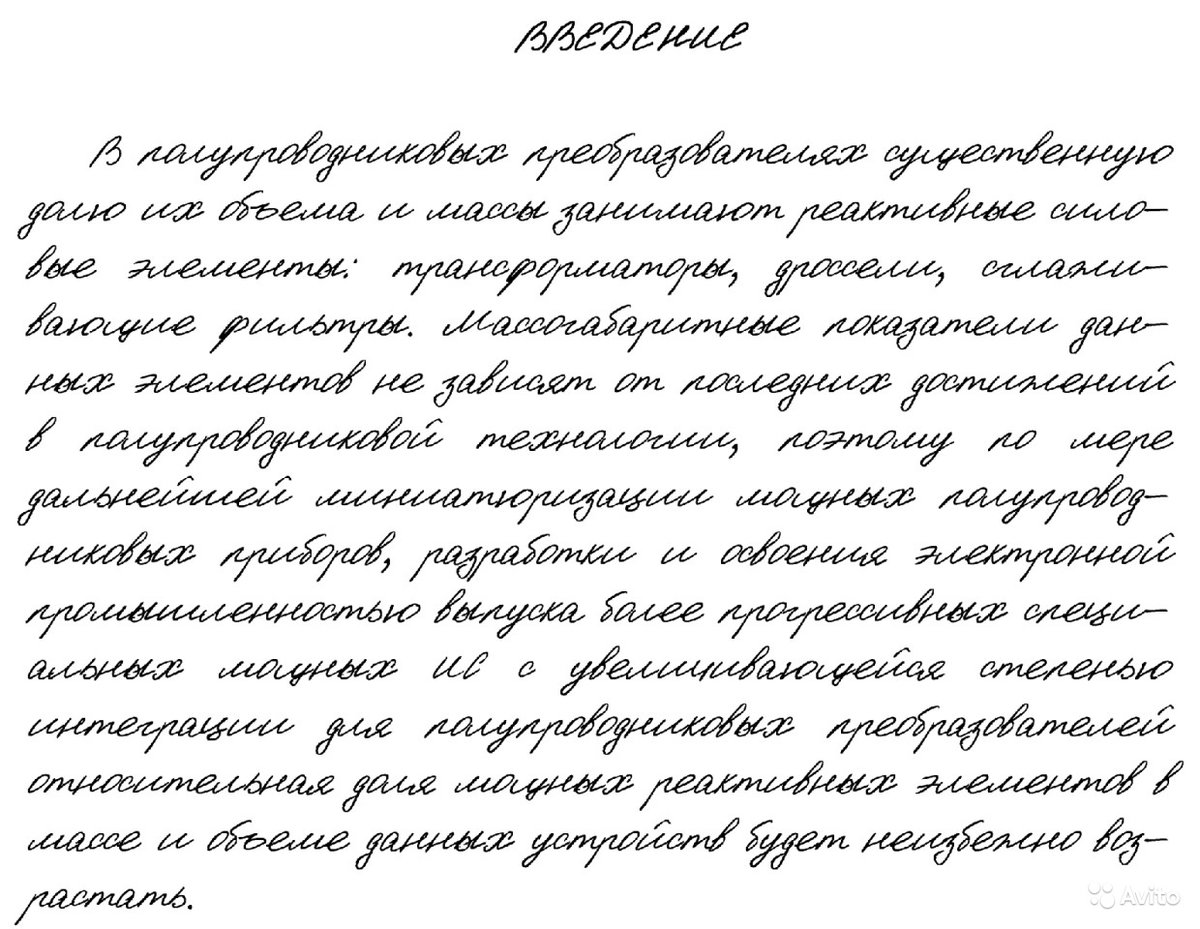 ВВЕДЕНИЕ
В полупроводниковых преобразователях существенную
долю их объема и массы занимают реактивные сило-
вые элементы: трансформаторы, дроссели, сглажи-
вающие фильтры. Массогабаритные показатели дан-
ных элементов не зависят от последних достижений
в полупроводниковой технологии, поэтому по мере
дальнейшей миниатюризации мощных полупровод-
никовых приборов, разработки и освоения электронной
промышленностью выпуска более прогрессивных специ-
альных мощных ИС с увеличивающейся степенью
интеграции для полупроводниковых преобразователей
относительная доля мощных реактивных элементов в
массе и объеме данных устройств будет неизбежно воз-
растать.
Avito